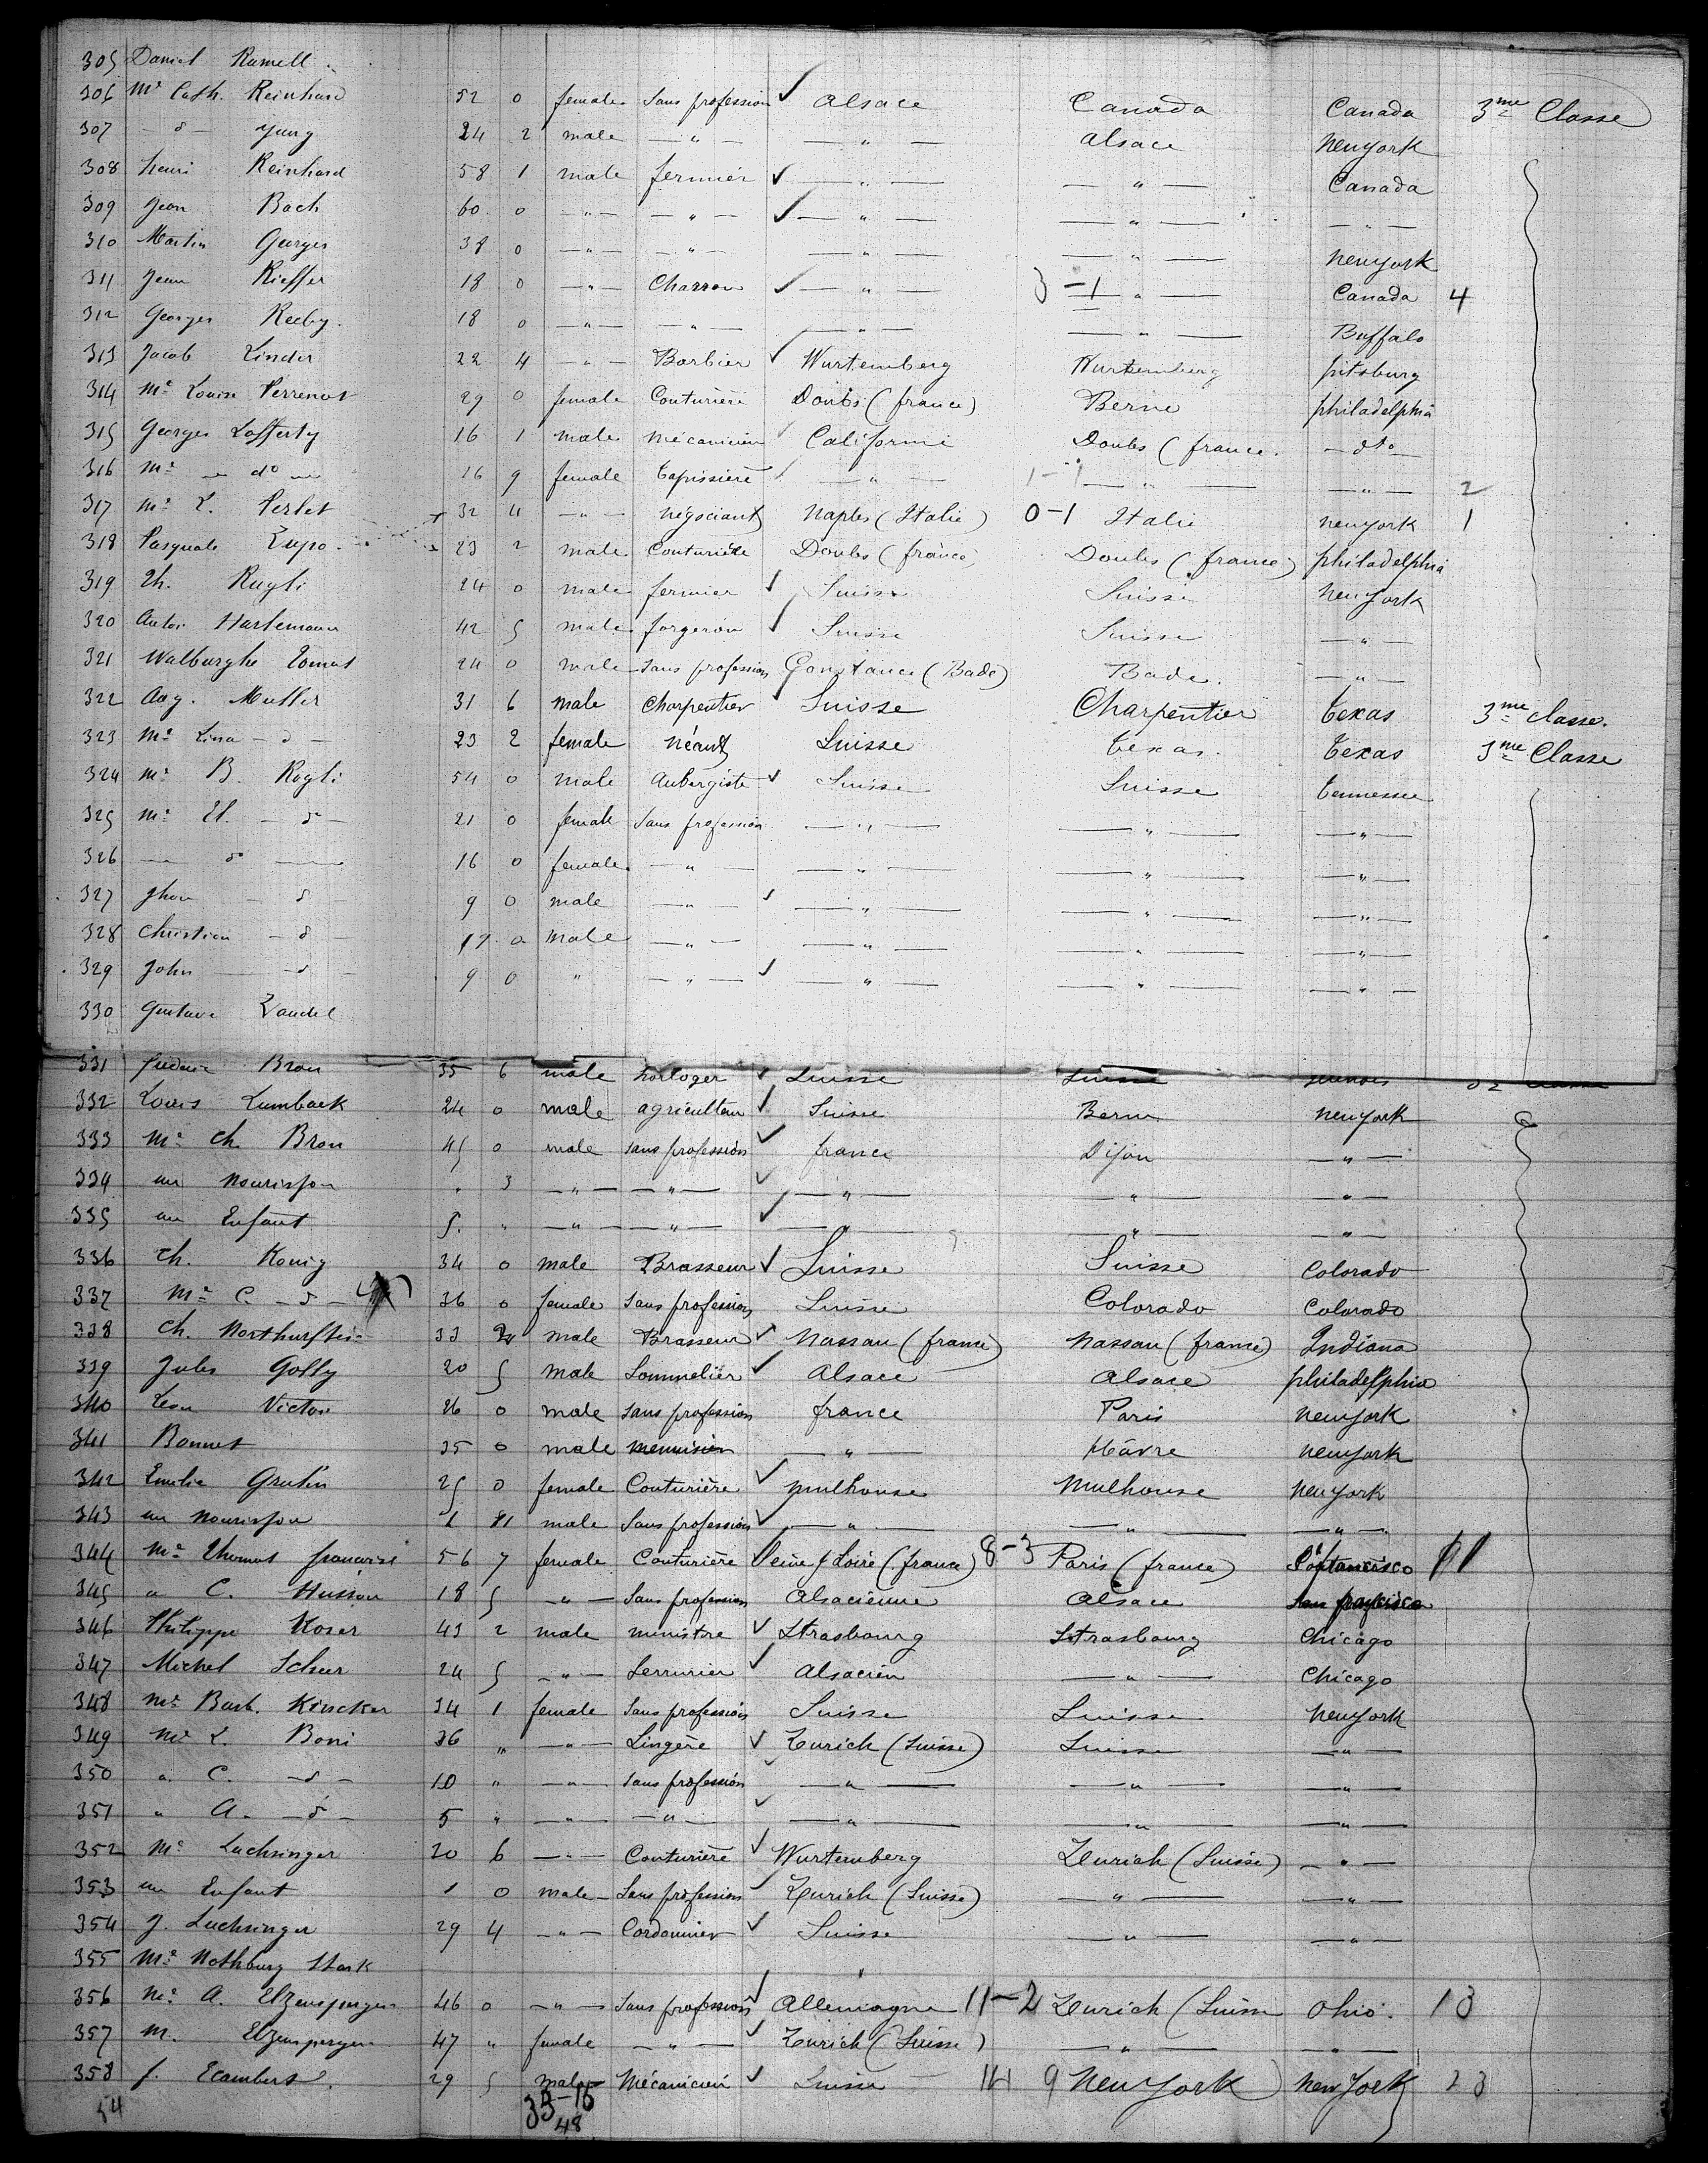 305 Daniel Ramell
306 Me Cath. Reinhard 52 0 female Sans profession ✓ Alsace Canada Canada 3me Classe
307 — d — Jung 24 2 male — " — — " — Alsace New york
308 henri Reinhard 58 1 male fermier ✓ — " — — " — Canada
309 Jean Bach 60 0 — " — — " — ✓ — " — — " — — " —
310 Martin Georges 38 0 — " — — " — — " — — " — New york
311 Jean Kieffer 18 0 — " — Charron ✓ — " — 3 - 1 — " — Canada 4
312 Georges Reeby 18 0 — " — — " — — " — — " — Buffalo
313 Jacob Linder 22 4 — " — Barbier ✓ Wurtemberg Wurtemberg pitsburg
314 Me Louise Perrenot 29 0 female Couturière Doubs (france) Berne philadelphia
315 Georges Lafferty 16 1 male Mécanicien Californi Doubs (france. — dto —
316 Me — do — 16 9 female Tapissière — " — 1 - 1 — " — — " — 2
317 Me L. Perlet 32 4 — " — négociant Naples (Italie) 0 - 1 Italie New york 1
318 Pasquale Lupo 23 2 male Couturière Doubs (france) Doubs (france) philadelphia
319 Th. Rugli 24 0 male fermier ✓ Suisse Suisse New york
320 Anton Hartemann 42 5 male forgeron ✓ Suisse Suisse — " —
321 Walburghe 24 0 male Sans profession Constance (Bade) Bade. — " —
322 Aug. Muller 31 6 male Charpentier Suisse Charpentier Texas 3me classe.
323 Me Lina — d — 23 2 female néant Suisse Texas. Texas 3me Classe
324 Mr B. Rogli 54 0 male Aubergiste ✓ Suisse Suisse Tennessee
325 Me El. — do — 21 0 female Sans profession — " — — " — — " —
326 — do — 16 0 female — " — — " — — " — — " —
327 Jhon — d — 9 0 male — " — ✓ — " — — " — — " —
328 Christian — d — 17 0 male — " — — " — — " — — " —
329 John — d — 9 0 " — " — ✓ — " — — " — — " —
330 Gustave Landel
331 Frederic Bron 35 6 male horloger ✓ Suisse Suisse
332 Louis Lumback 24 0 male agriculteur ✓ Suisse Berne New york
333 Me Ch. Bron 45 0 male sans profession ✓ france Dijon — " —
334 un Nourisson . 3 — " — — " — ✓ — " — — " — — " —
335 un Enfant 5. " — " — — " — ✓ — " — — " — — " —
336 Ch. Konig 34 0 male Brasseur ✓ Suisse Suisse Colorado
337 Me C. — d — 36 0 female Sans profession Suisse Colorado Colorado
338 Ch. 33 male Brasseur ✓ Nassau (france) Nassau (france) Indiana
339 Jules Golly 20 5 male Sommelier ✓ Alsace Alsace philadelphia
340 Leon Victor 26 0 male sans profession france Paris New york
341 Bonnet 35 0 male menuisier — " — Hâvre New york
342 Emilie Grutin 25 0 female Couturière ✓ Mulhouse Mulhouse New york
343 un Nourisson 1 male Sans profession ✓ — " — — " — — " —
344 Me Thomas francoise 56 7 female Couturière Seine & Loire (france) 8 - 3 Paris (france) 11
345 " C. Husson 18 5 — " — Sans profession Alsacienne Alsace San francisco
346 Philippe Moser 43 2 male ministre ✓ Strasbourg Strasbourg Chicago
347 Michel Scheer 24 5 — " — Serrurier ✓ Alsacien — " — Chicago
348 Me Barb. Kincker 34 1 female Sans profession Suisse Suisse New york
349 Me L. Boni 36 " — " — Lingère ✓ Zurich (Suisse) Suisse — " —
350 " C. — d — 10 " — " — sans profession ✓ — " — — " — — " —
351 " A. — d — 5 " — " — — " — ✓ — " — — " — — " —
352 Me Luchsinger 20 6 — " — Couturière ✓ Wurtemberg Zurich (Suisse) — " —
353 un Enfant 1 0 male Sans profession ✓ Zurich (Suisse) — " — — " —
354 J. Luchsinger 29 4 — " — Cordonnier ✓ Suisse — " — — " —
355 Me Nothburg Stark
356 Me A. Elzensperger 46 0 — " — Sans profession ✓ Allemagne 11 - 2 Zurich (Suisse Ohio. 13
357 M. Elzensperger 47 " female — " — ✓ Zurich (Suisse) — " — — " —
358 f. Ecambert 29 5 male Mécanicien ✓ Suisse 14 9 New York New York 23
54 33 - 15
48